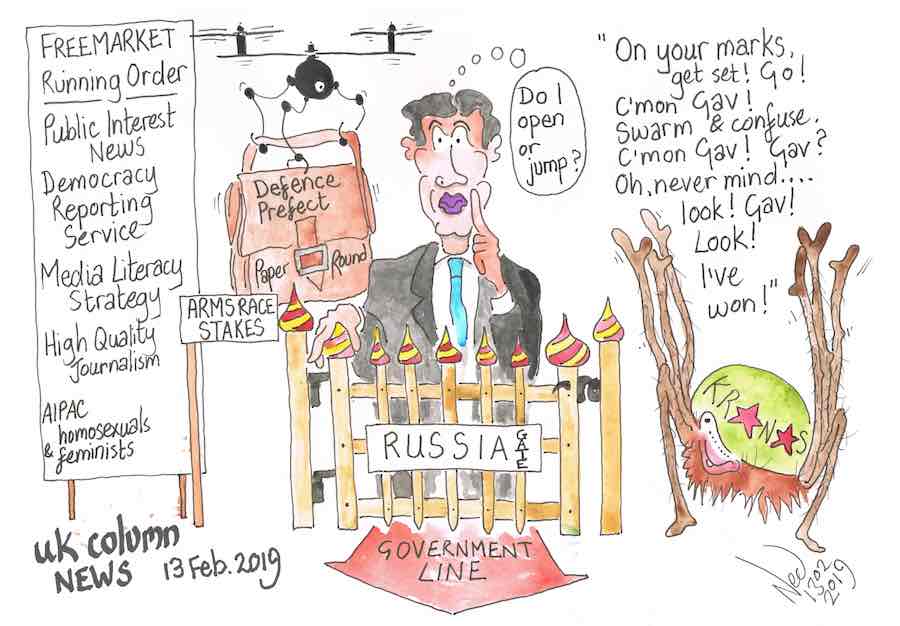 FREEMARKET
Running Order
Public Interest
NEWS
Democracy
Reporting
Service
Media Literacy
Strategy
High Quality
Journalism
AIPAC
homosexuals
& feminists
Defence
Prefect
Paper Round
ARMS RACE
STAKES
Do I
open
or
jump?
RUSSIA GATE
GOVERNMENT
LINE
"On your marks,
get set! Go!
C'mon Gav!
Swarm & confuse.
C'mon Gav! Gav?
Oh, never mind....
look! Gav!
Look!
I've
won!"
KR★N★S
uk column
NEWS 13 Feb. 2019
1302
2019